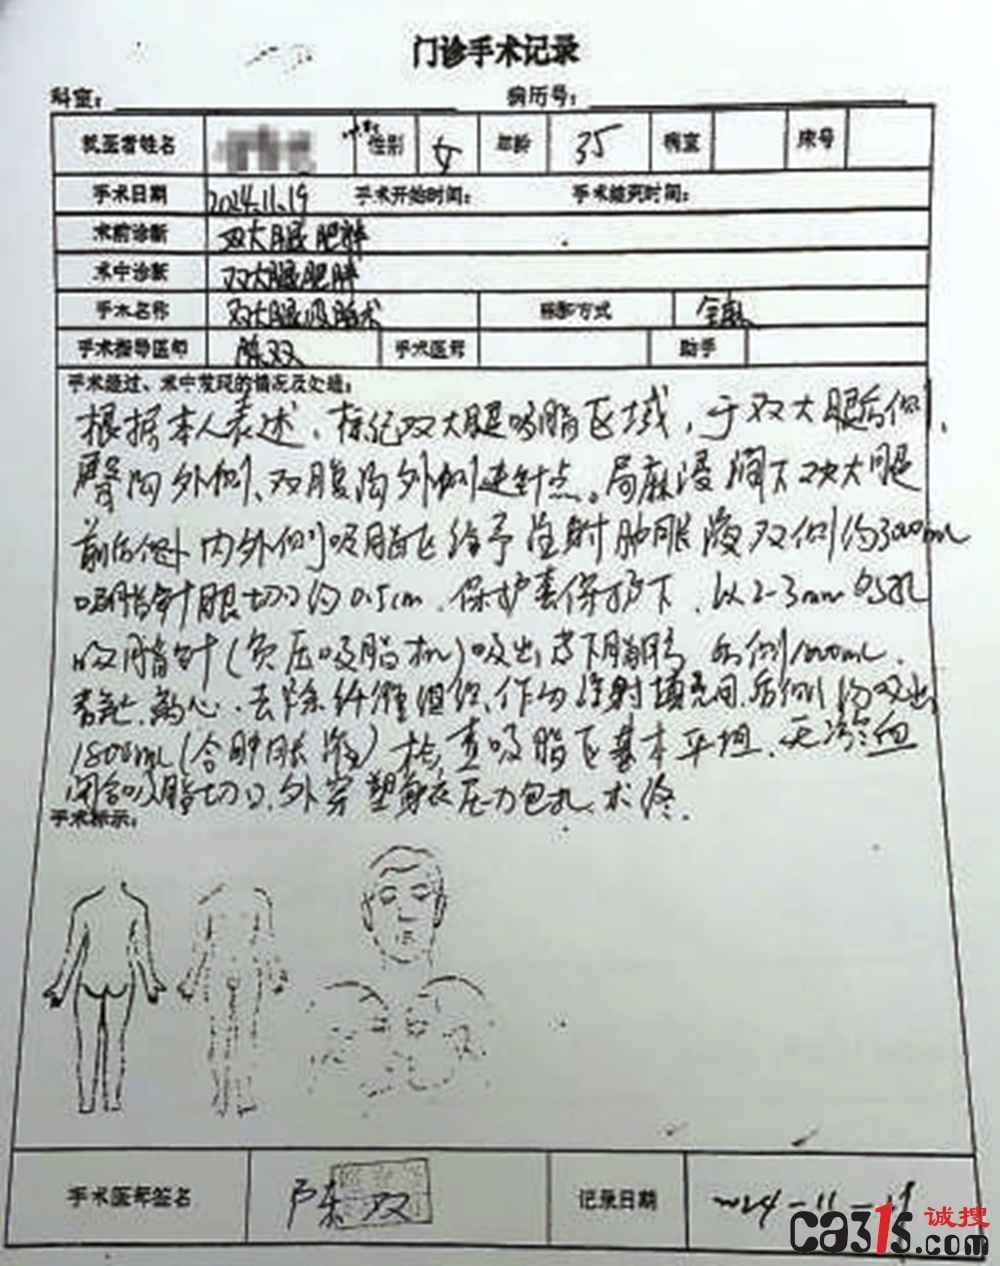 门诊手术记录
科室： 病历号：
就医者姓名 性别 女 年龄 35 病室 床号
手术日期 2024.11.19 手术开始时间： 手术结束时间：
术前诊断 双大腿肥胖
术中诊断 双大腿肥胖
手术名称 双大腿吸脂术 麻醉方式 全麻
手术指导医师 陈双 手术医师 助手
手术经过、术中发现的情况及处理：
根据本人表述，标记双大腿吸脂区域，于双大腿后侧、
臀沟外侧、双腹沟外侧进针点。局麻浸润下双大腿
内外侧吸脂区给予注射肿胀液双侧约3000mL
吸脂针眼切口约0.5cm，保护套保护下，以2-3mm
吸脂针(负压吸脂机)吸出皮下脂肪，1000mL，
离心，去除纤维组织，作为注射填充
1800mL(含肿胀液)检查吸脂区基本平坦，无渗血
闭合吸脂切口，外穿塑身衣压力包扎，术终。
手术标示：
手术医师签名 陈双 记录日期 2024-11-19
ca315s.com 诚搜